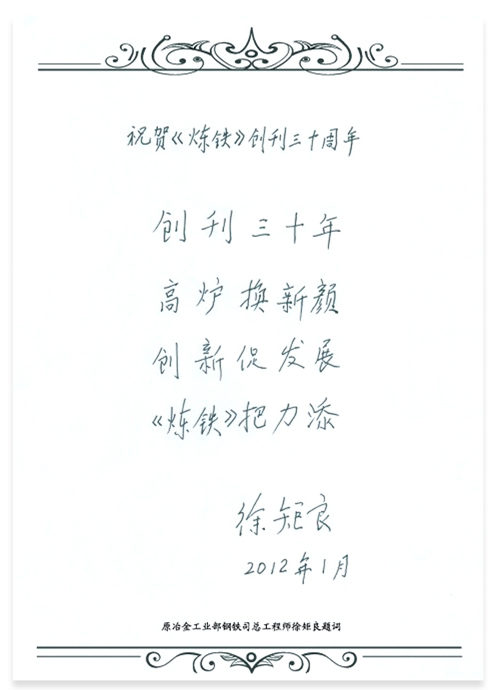 祝贺《炼铁》创刊三十周年
创刊三十年
高炉换新颜
创新促发展
《炼铁》把力添
徐矩良
2012年1月
原冶金工业部钢铁司总工程师徐矩良题词